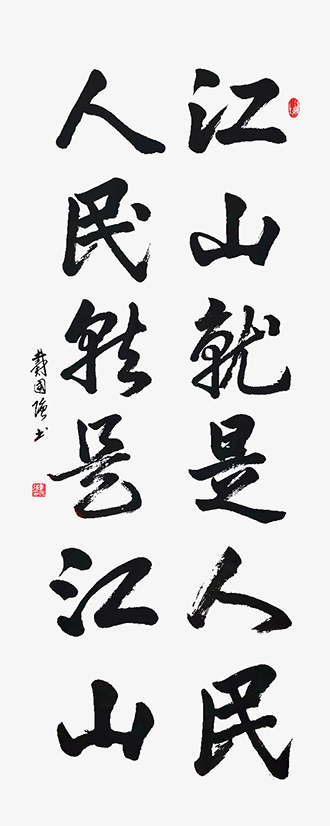 江山就是人民
人民就是江山
戴国强书